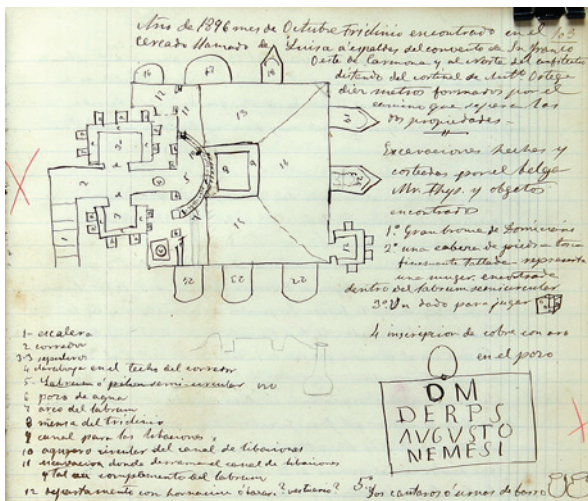 Año de 1896 mes de Octubre triclinio encontrado en el 103
cercado llamado de Luisa a espaldas del convento de Sn. Franco
Oeste de Carmona y al Norte del anfiteatro
distando del cortinal de Antº Ortega
diez metros formados por el
camino que separa las
dos propiedades -
Excavaciones hechas y
costeadas por el belga
Mr. Thys. y objetos
encontrados
1º Gran bronce de Domiciano
2º una cabeza de piedra tosca
finamente tallada representa
una muger. encontrada
dentro del labrum semicircular
3º Un dado para jugar
4 inscripcion de cobre con aro
en el pozo
DM
DERPS
AUGUSTO
NEMESI
1- escalera
2 corredor
3-3 sepulcros
4 claraboya en el techo del corredor
5- Labrum ó semi-circular
6 pozo de agua
7 arco del labrum
8 mensa del triclinio
9 canal para las libaciones
10 agugero circular del canal de libaciones
11 escavacion donde derrama el canal de libaciones
y tal vez complemento del labrum
12 departamento con hornacina ó lazar. ? vestuario?
5º dos cantaros ó urnas de barro